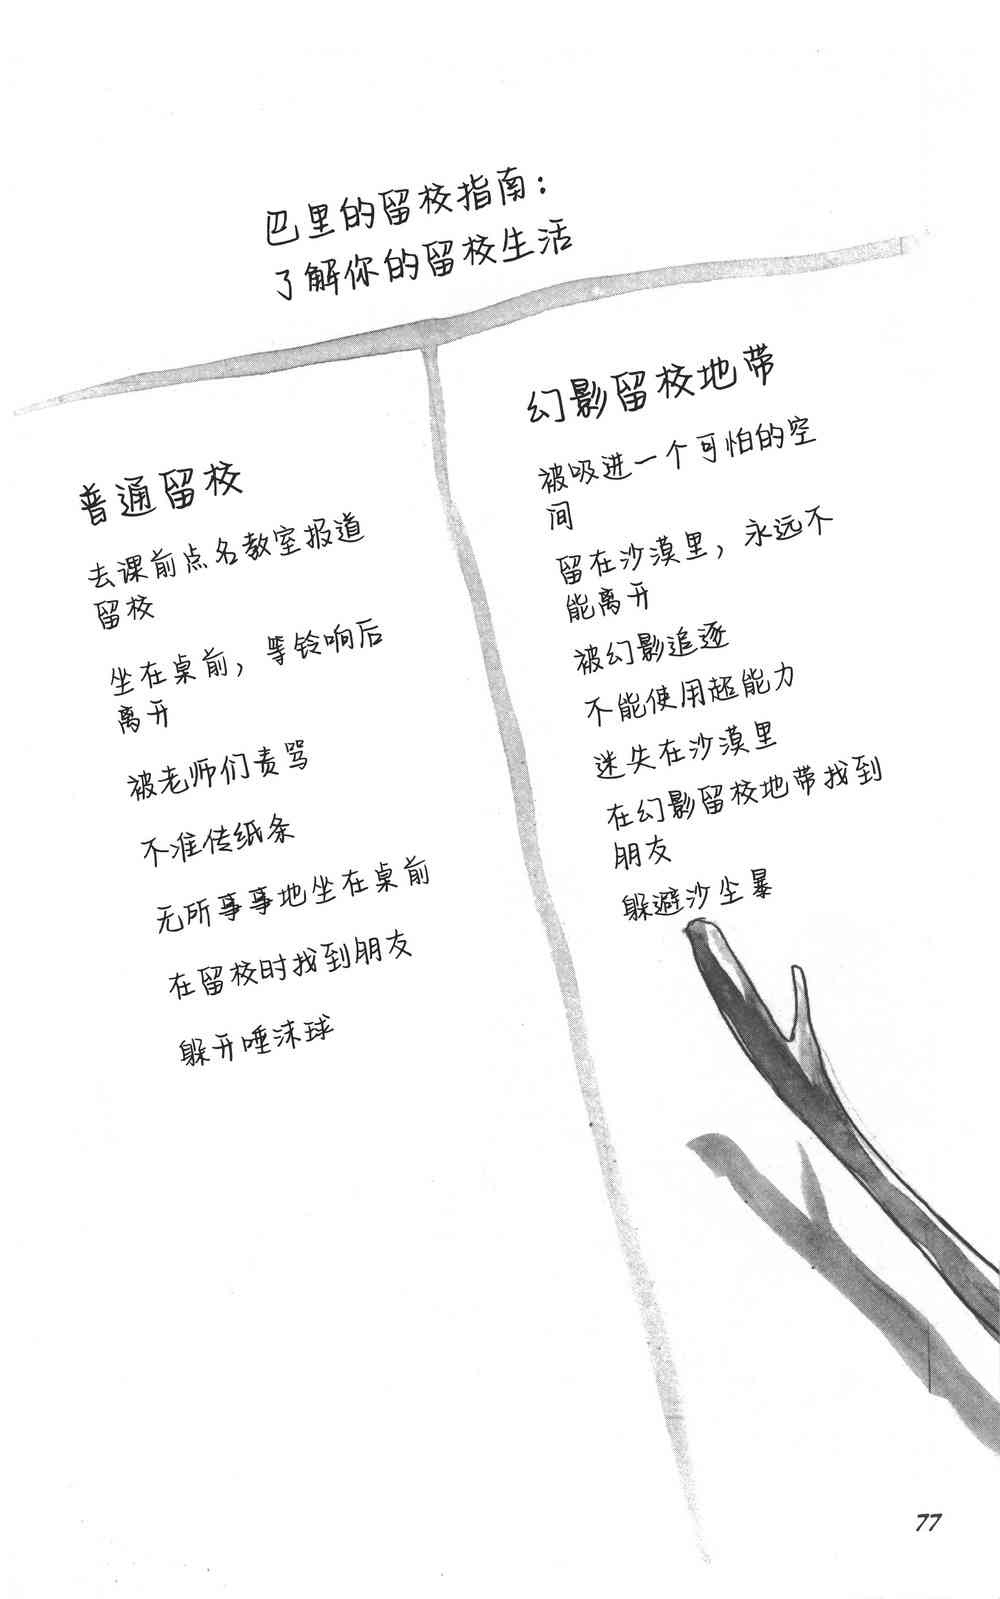 巴里的留校指南：
了解你的留校生活
普通留校
去课前点名教室报道
留校
坐在桌前，等铃响后
离开
被老师们责骂
不准传纸条
无所事事地坐在桌前
在留校时找到朋友
躲开唾沫球
幻影留校地带
被吸进一个可怕的空
间
留在沙漠里，永远不
能离开
被幻影追逐
不能使用超能力
迷失在沙漠里
在幻影留校地带找到
朋友
躲避沙尘暴
77